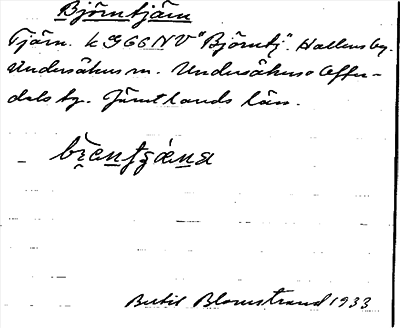 Björntjärn
Tjärn. k GGGNV "Björntj". Hallens by.
Undersåkers sn. Undersåkers o Offer-
dals tg. Jämtlands län.
Bertil Blomstrand 1933